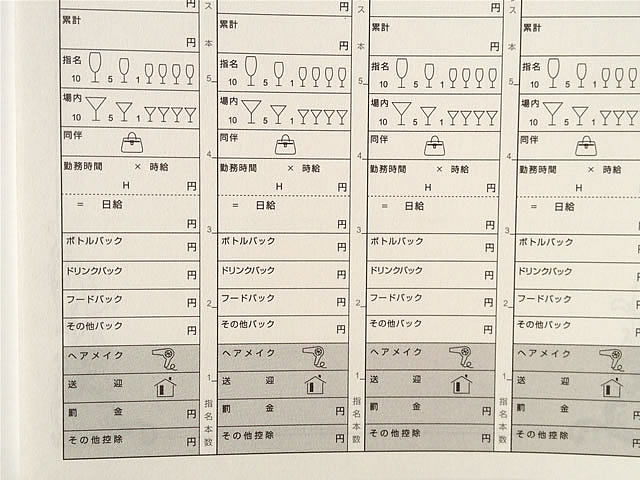 円
累計
円
指名
10 5 1
場内
10 5 1
同伴
勤務時間 × 時給
H 円
= 日給
円
ボトルバック 円
ドリンクバック 円
フードバック 円
その他バック 円
ヘアメイク
送 迎
罰 金 円
その他控除 円
ス 本
5
4
3
2
1
指名本数
円
累計
円
指名
10 5 1
場内
10 5 1
同伴
勤務時間 × 時給
H 円
= 日給
円
ボトルバック 円
ドリンクバック 円
フードバック 円
その他バック 円
ヘアメイク
送 迎
罰 金 円
その他控除 円
本
5
4
3
2
1
指名本数
円
累計
円
指名
10 5 1
場内
10 5 1
同伴
勤務時間 × 時給
H 円
= 日給
円
ボトルバック 円
ドリンクバック 円
フードバック 円
その他バック 円
ヘアメイク
送 迎
罰 金 円
その他控除 円
ス 本
5
4
3
2
1
指名本数
累計
指名
10 5 1
場内
10 5 1
同伴
勤務時間 × 時給
H
= 日給
ボトルバック
ドリンクバック
フードバック
その他バック
ヘアメイク
送 迎
罰 金
その他控除 円